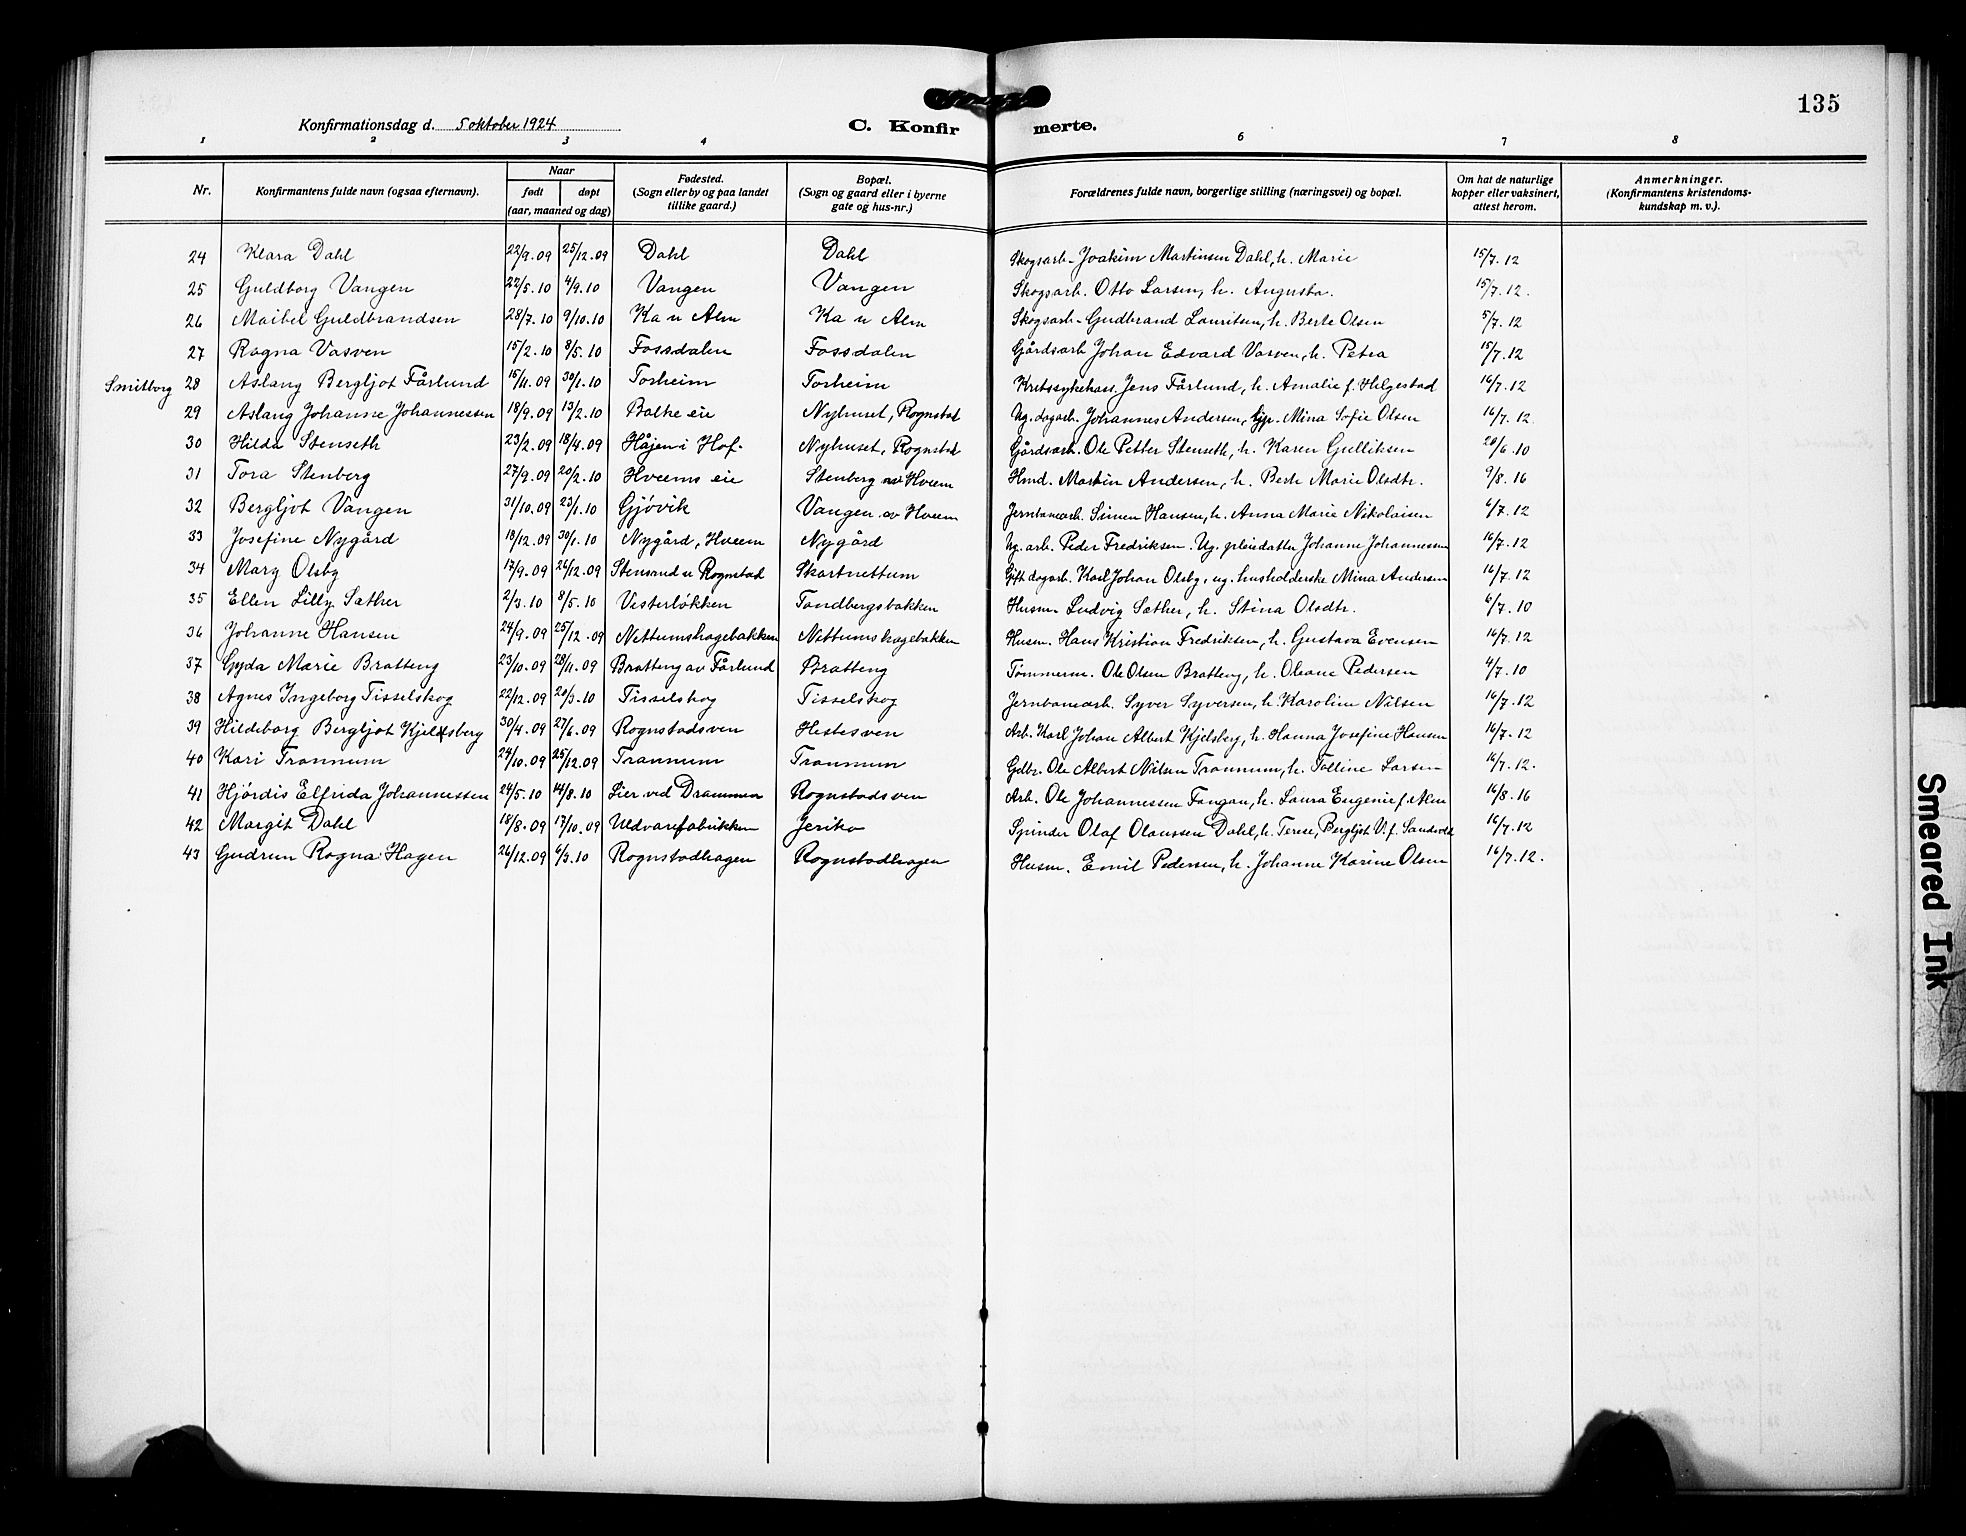 135
Konfirmationsdag d. 5 oktober 1924
C. Konfirmerte.
1 2 3 4 6 7 8
Nr. Konfirmantens fulde navn (ogsaa efternavn). Naar født døpt (aar, maaned og dag) Fødested. (Sogn eller by og paa landet tillike gaard.) Bopæl. (Sogn og gaard eller i byerne gate og hus-nr.) Forældrenes fulde navn, borgerlige stilling (næringsvei) og bopæl. Om hat de naturlige kopper eller vaksinert, attest herom. Anmerkninger. (Konfirmantens kristendomskundskap m. v.).
24 Klara Dahl 22/9.09 25/12.09 Dahl Dahl Skogsarb. Joakim Martinsen Dahl, h. Marie 15/7.12
25 Guldborg Vangen 27/5.10 4/9.10 Vangen Vangen Skogsarb. Otto Larsen, h. Augusta. 15/7.12.
26 Maibel Guldbrandsen 28/7.10 9/10.10 Ka u Alm Ka u Alm Skogsarb. Gudbrand Lauritsen, h. Berte Olsen 5/7.12
27 Ragna Vasven 15/2.10 8/5.10 Fossdalen Fossdalen Gårdsarb Johan Edvard Vasven, h. Petra 15/7.12
Smitborg 28 Aslaug Bergljot Fårlund 15/11.09 30/1.10 Torheim Torheim Kretssykekass. Jens Fårlund, h. Amalie f. Helgestad 16/7.12
29 Aslaug Johanne Johannessen 18/9.09 13/2.10 Balke eie Nyhuset, Rognstad Ug. dagarb. Johannes Andersen, Mina Sofie Olsen 16/7.12
30 Hilda Stenseth 23/2.09 18/4.09 Håjen i Hof. Nyhuset, Rognstad Gårdsarb. Ole Petter Stenseth, h. Karen Gulliksen 20/6.10
31 Tora Stenberg 27/9.09 20/2.10 Hveems eie Stenberg av Hveem Hmd. Martin Andersen, h. Berte Marie Olsdtr. 9/8.16
32 Bergljot Vangen 31/10.09 23/1.10 Gjövik Vangen av Hveem Jernbanearb. Simen Hansen, h. Anna Marie Nikolaisen 6/7.12
33 Josefine Nygård 18/12.09 30/1.10 Nygård, Hveem Nygård Ug. arb. Peder Fredriksen. Ug. pleiedatter Johanne Johannessen 16/7.12
34 Mary Olsby 17/9.09 26/12.09 Stensrud u Rognstad Skartnettum Gift dagarb. Karl Johan Olsby, ug. husholderske Mina Andersen 16/7.12
35 Ellen Lilly Sæther 2/3.10 8/5.10 Vesterlökken Tandbergsbakken Husm. Ludvig Sæther, h. Stina Olsdtr. 6/7.10
36 Johanne Hansen 24/9.09 25/12.09 Nettumshagebakken Nettumshagebakken Husm. Hans Kristian Fredriksen, h. Gustava Evensen 16/7.12
37 Gyda Marie Bratteng 23/10.09 28/11.09 Bratteng av Fårlund Bratteng Tömmerm. Ole Olsen Bratteng, h. Oleane Pedersen 4/7.10
38 Agnes Ingeborg Tisselskog 22/12.09 20/3.10 Tisselskog Tisselskog Jernbanearb. Syver Syversen, h. Karoline Nilsen 16/7.12
39 Hildeborg Bergljot Kjelsberg 30/4.09 27/6.09 Rognstadsven Hestesven Arb. Karl Johan Albert Kjelsberg, h. Hanna Josefine Hansen 16/7.12
40 Kari Trannum 24/10.09 25/12.09 Trannum Trannum Gdbr. Ole Albert Nilsen Trannum, h. Talline Larsen 16/7.12.
41 Hjördis Elfrida Johannessen 24/5.10 14/8.10 Lier ved Drammen Rognstadsven Arb. Ole Johannessen Fangan, h. Laura Eugenie f. Alm 16/8.16
42 Margit Dahl 18/8.09 17/10.09 Uldvarefabrikken Jeriko Spinder Olaf Olaussen Dahl, h. Terese, Bergljot V. f. Sandvold 16/7.12
43 Gudrun Ragna Hagen 26/12.09 6/3.10 Rognstadhagen Rognstadhagen Husm. Emil Pedersen, h. Johanne Karine Olsen 16/7.12.
Smeared Ink